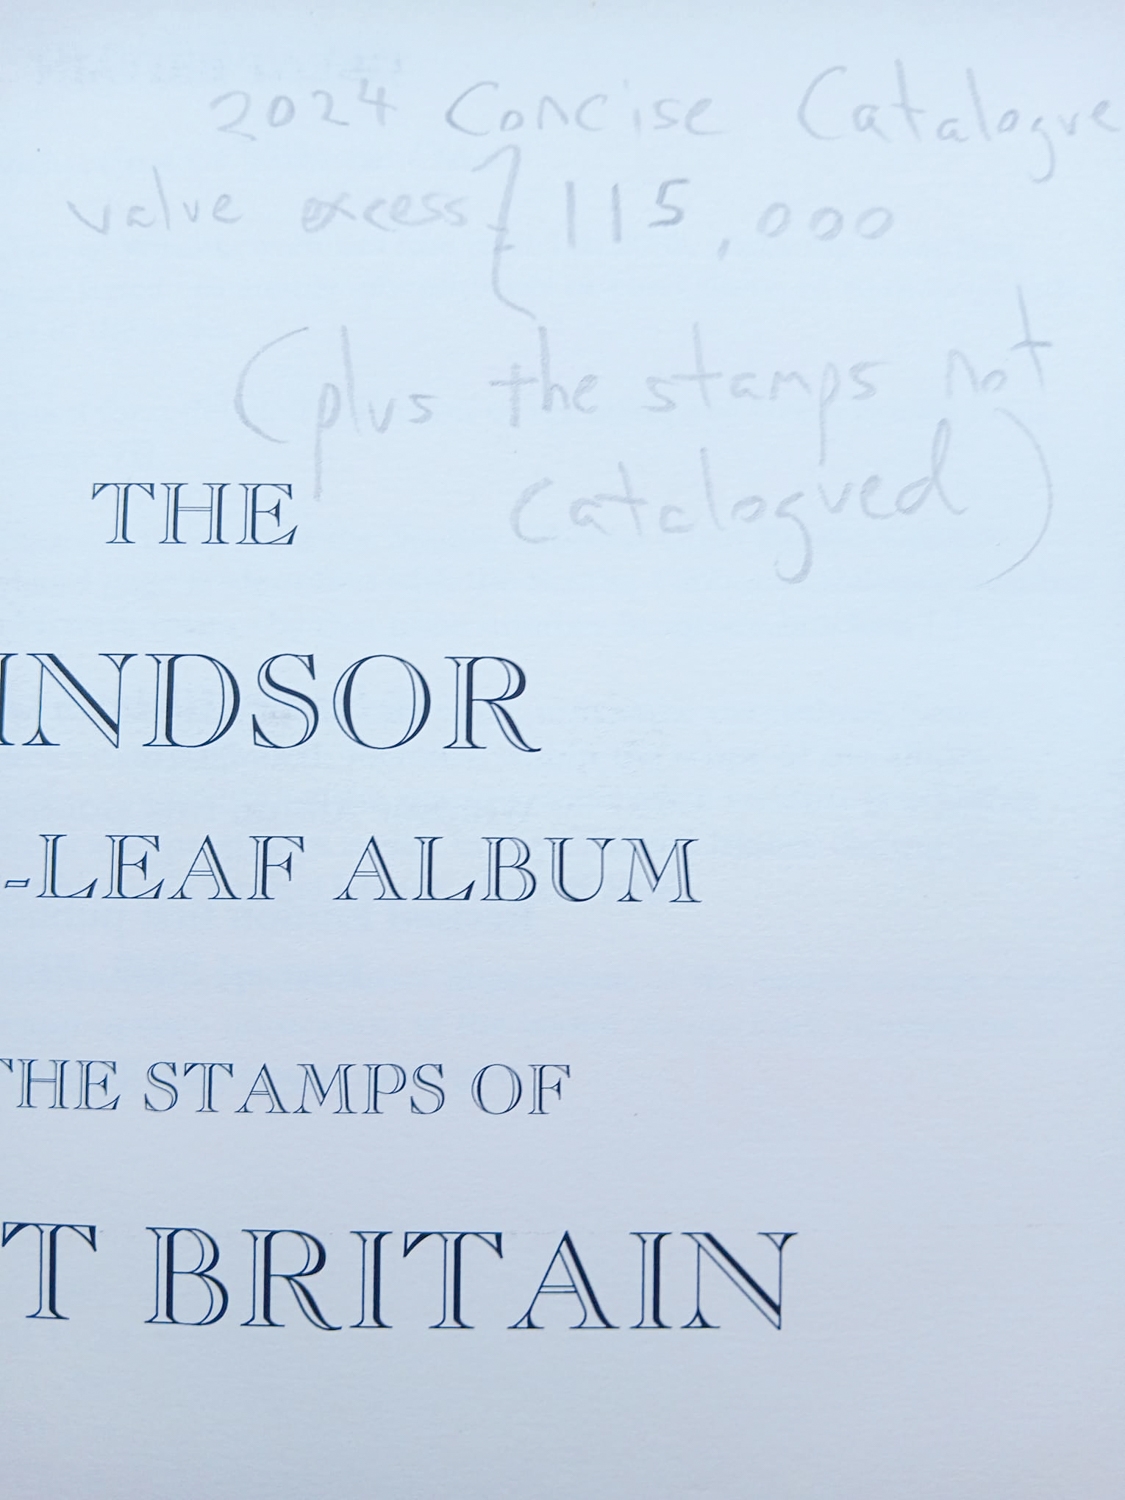 2024 Concise Catalogue
value excess { 115,000
(plus the stamps not
catalogued)
THE
INDSOR
-LEAF ALBUM
THE STAMPS OF
T BRITAIN